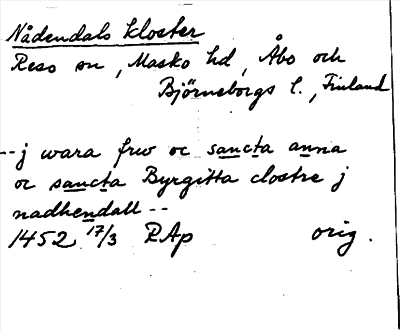 Nådendals kloster
Reso sn, Masko hd, Åbo och
Björneborgs l., Finland
--j wara frw oc sancta anna
oc sancta Byrgitta clostre j
nadhendall--
1452 17/3 RAp orig.